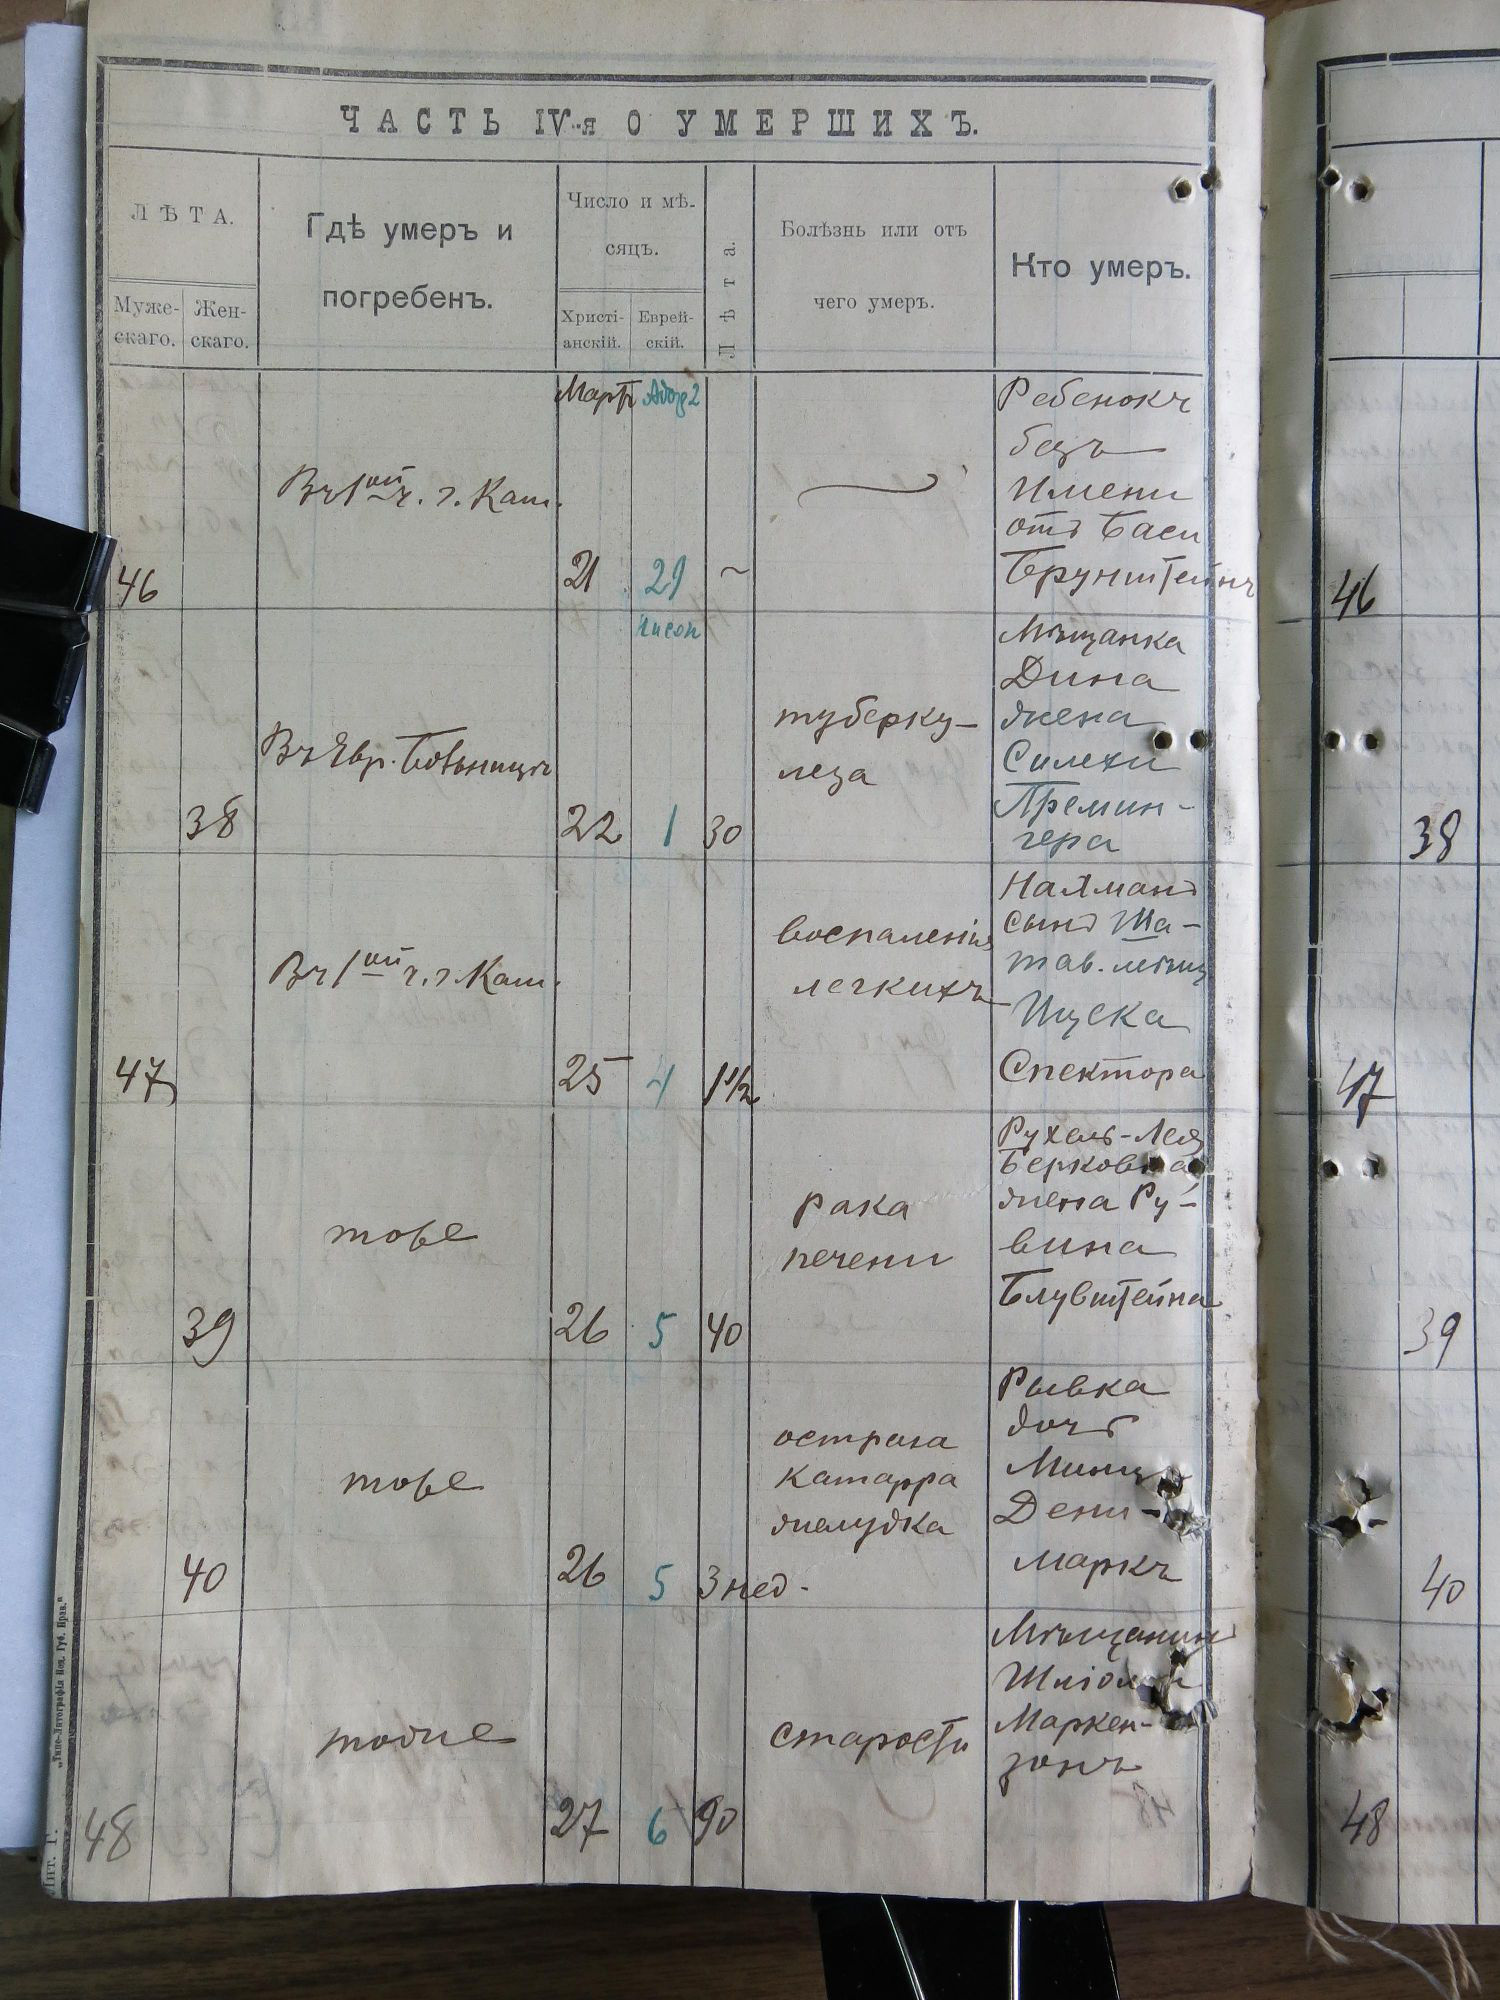 ЧАСТЬ IV-я О УМЕРШИХЪ.
ЛѢТА.
Муже-
скаго.
Жен-
скаго.
Гдѣ умеръ и
погребенъ.
Число и мѣ-
сяцъ.
Христі-
анскій.
Еврей-
скій.
Лѣта.
Болѣзнь или отъ
чего умеръ.
Кто умеръ.
Мартъ Адор 2
46
Въ 1ой ч. г. Каш.
21 29 ~
Ребенокъ
безъ
имени
отъ Баси
Брунштейнъ
46
Нисон
38
Въ Евр. Больницѣ
22 1 30
туберку-
леза
Мѣщанка
Дина
жена
Силехи
Премин-
гера
38
47
Въ 1ой ч. г. Каш.
25 4 1 1/2
воспаленія
легкихъ
Нахманъ
сынъ Ша-
тав. мѣщ
Ицска
Спектора
47
39
тоже
26 5 40
рака
печени
Рухель-Лея
Берковна
жена Ру-
вина
Блувштейна
39
40
тоже
26 5 3 нед.
остраго
катарра
желудка
Рывка
дочь
Минц
Дени-
маркъ
40
48
тоже
27 6 90
старости
Мѣщанинъ
Маркен-
зонъ
48
„Типо-Литографія Под. Губ. Прав."